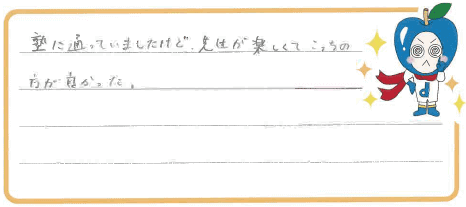 塾に通っていましたけど、先生が楽しくてこっちの
方が良かった。